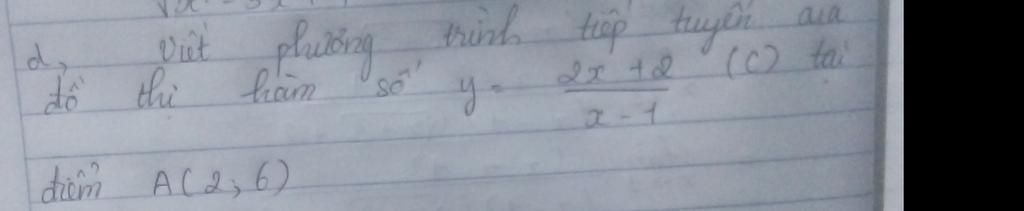 d, Viết phương trình tiếp tuyến của
đồ thị hàm số y = \frac{2x + 2}{x - 1} (C) tại
điểm A(2; 6)